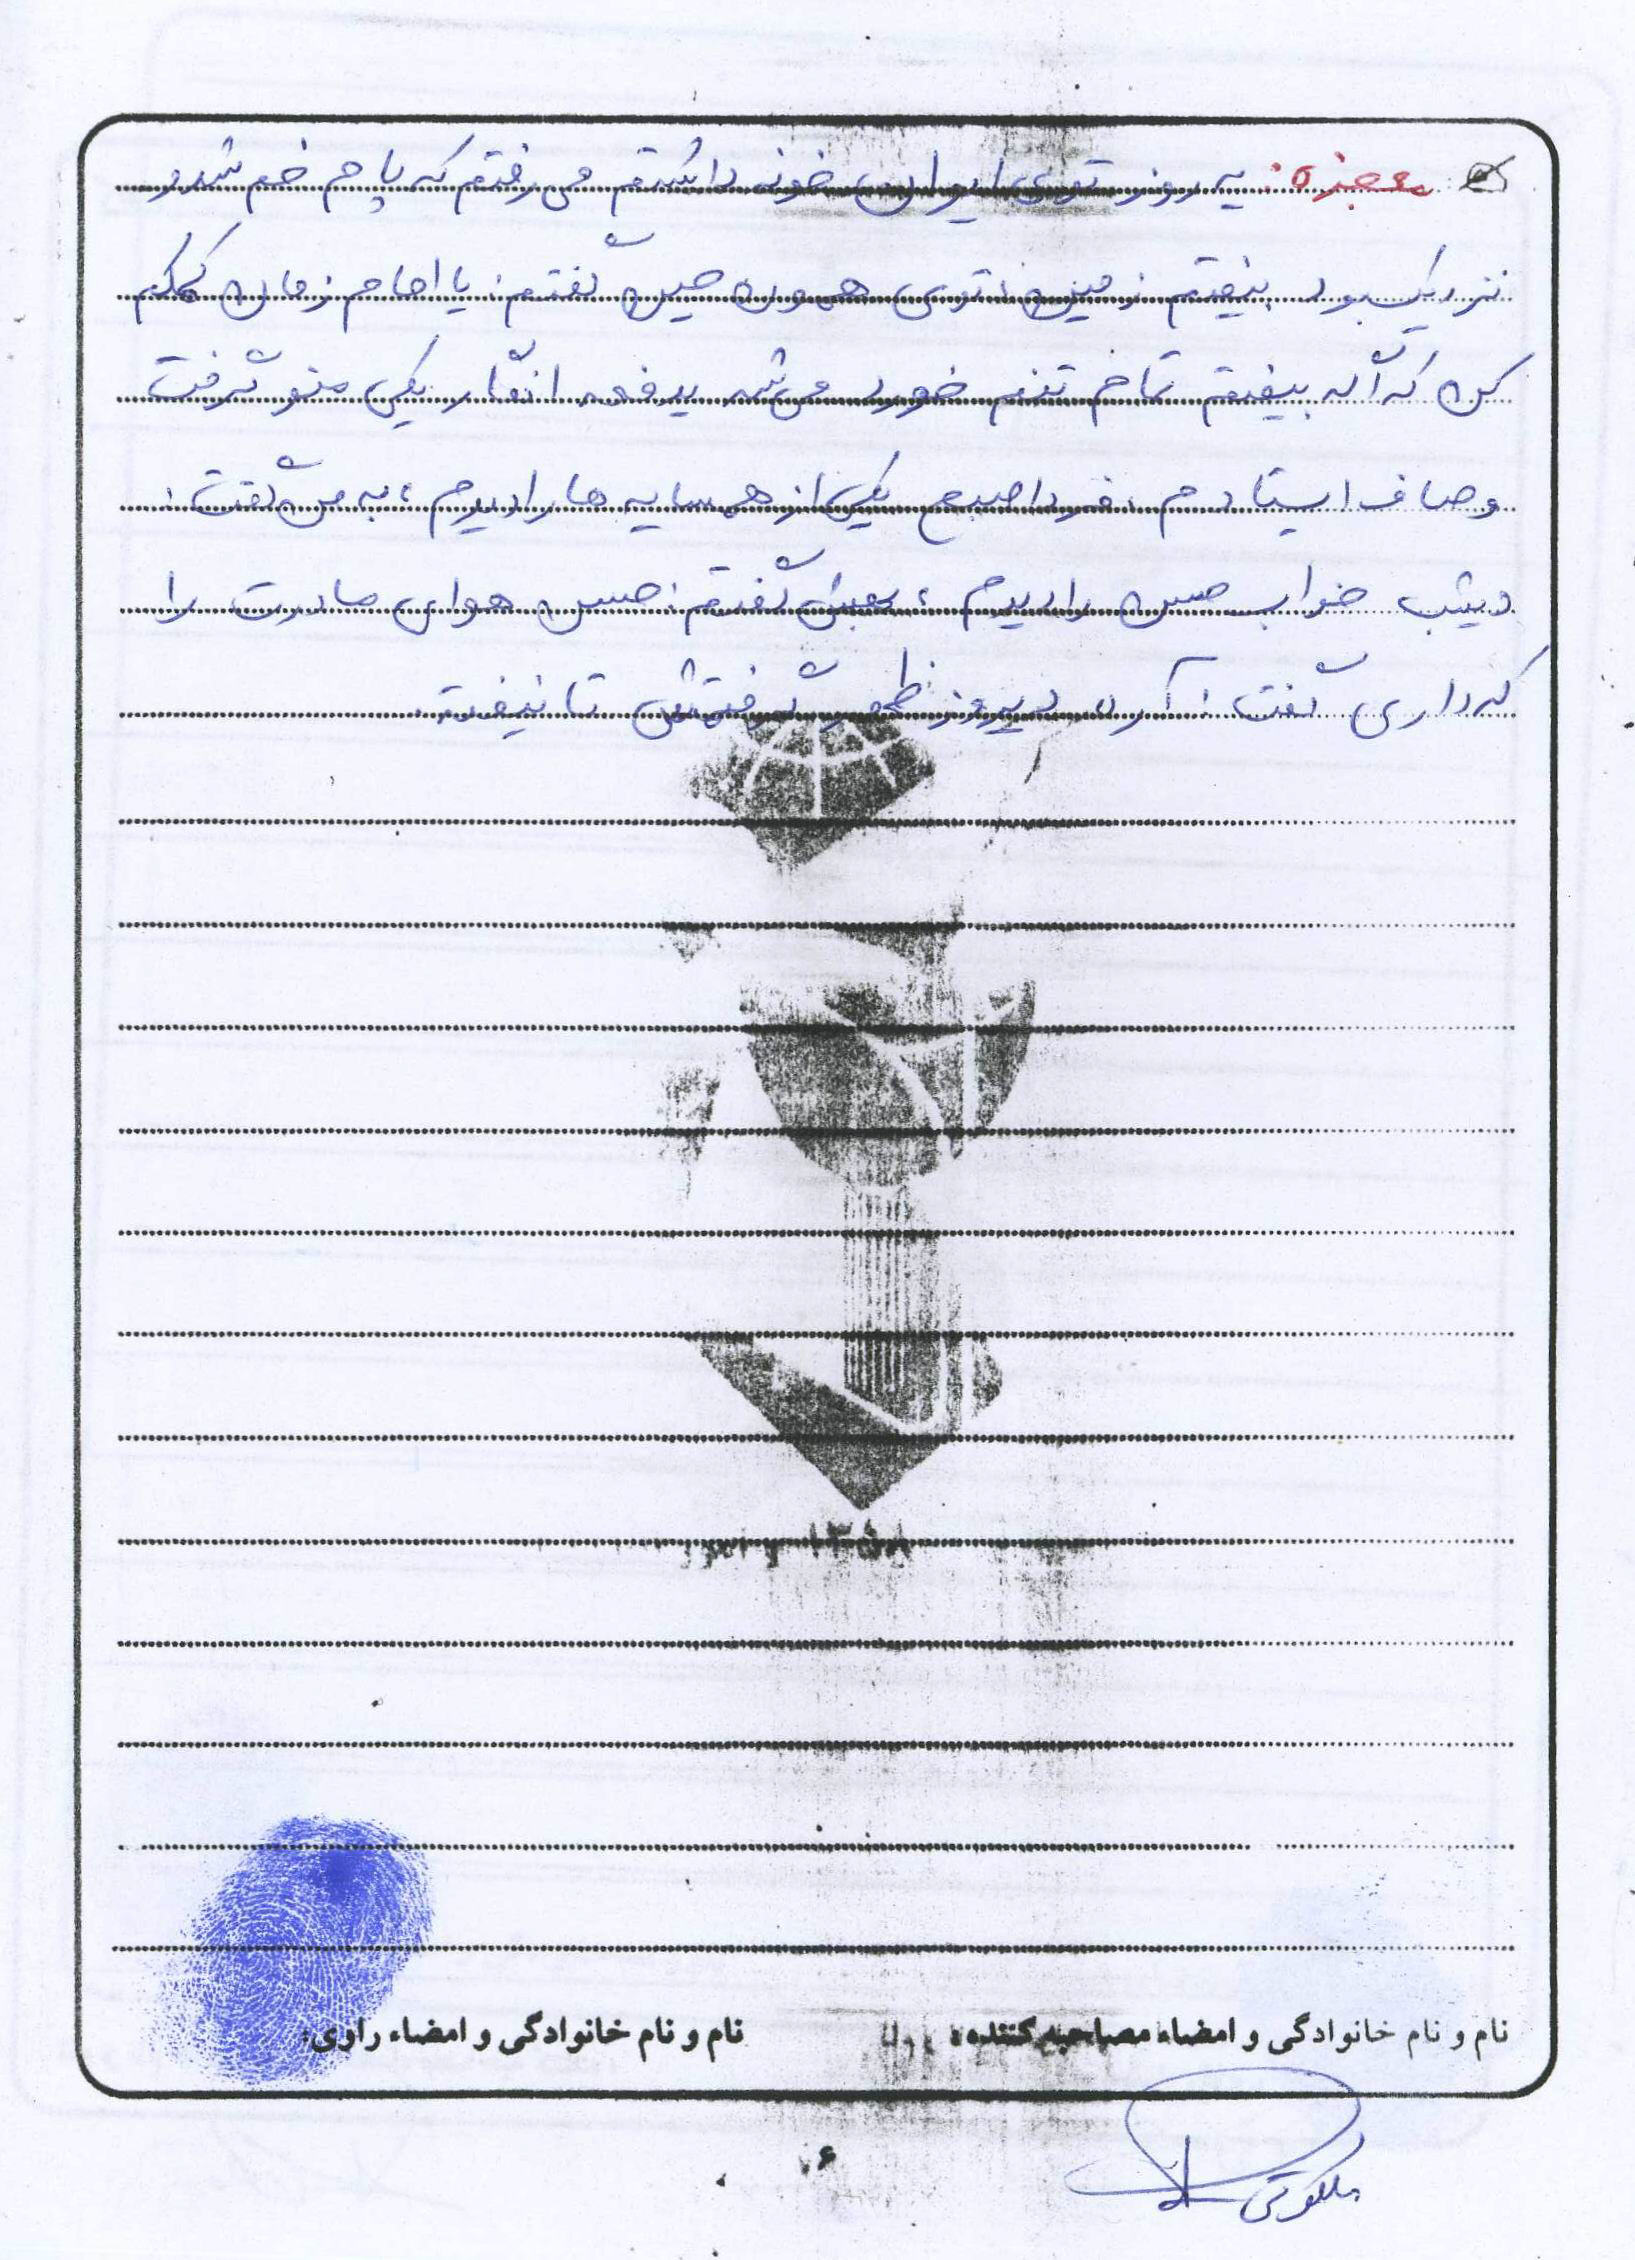 معجزه: یه روز توی ایوان خونه داشتم می رفتم که پام خم شد و
نزدیک بود بیفتم زمین، توی همون حین گفتم: یا امام زمان کمکم
کن که اگه بیفتم تمام تنم خورد می شه یدفعه انگار یکی منو گرفت
و صاف ایستادم. فردا صبح یکی از همسایه ها را دیدم، به من گفت:
دیشب خواب حسن را دیدم، بهش گفتم: حسن هوای مادرت را
که داری گفت: آره دیروز ظهر گرفتمش تا نیفته.
نام و نام خانوادگی و امضاء مصاحبه کننده
نام و نام خانوادگی و امضاء راوی:
۶
ملکوتی